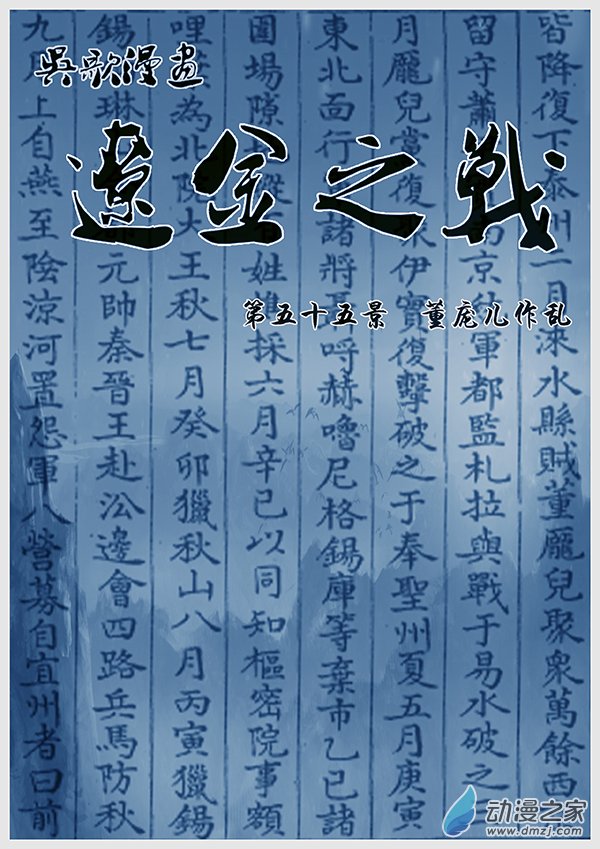 吳歌漫畫
遼金之戰
第五十五景 董庞儿作乱
皆降復下泰州二月淶水縣賊董龐兒聚衆萬餘西
留守蕭
京統軍都監札拉與戰于易水破之
月龐兒黨復
伊實復擊破之于奉聖州夏五月庚寅
東北面行
諸將
呼赫嚕尼格錫庫等棄市乙巳諸
圍場隙
縱
姓樵採六月辛巳以同知樞密院事額
哩
為北院大王秋七月癸卯獵秋山八月丙寅獵錫
錫琳
元帥秦晉王赴沿邊會四路兵馬防秋
九月上自燕至陰涼河置怨軍八營募自宜州者曰前
动漫之家
www.dmzj.com